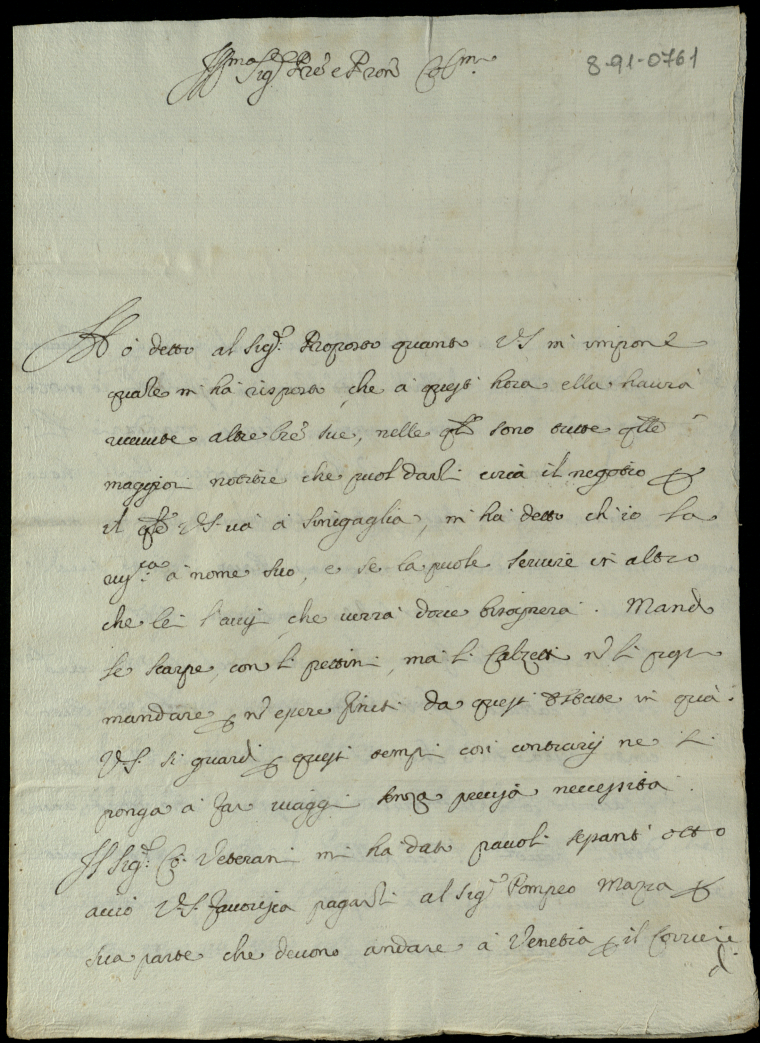 8-91-0761
Ill.mo Sig.r Pre e Pron Col.mo
Hò detto al Sig.r Proposto quanto VS m'impone
quale m'hà risposto, che à quest'hora ella haurà
riceuute altre lre sue, nelle qli sono tutte qlle
maggiori notitie che puol darli circa il negotio p
il qle VS uà à Sinigaglia, m'hà detto ch'io la
riu.ca à nome suo, e se la puole seruire in altro
che lei l'auisi che uerrà doue bisognerà. Mando
le scarpe, con li pettini, mà li Calzetti nò li posso
mandare p nò essere finiti da quest' estate in quà.
VS. si guardi p questi tempi così contrarij ne si
ponga à far uiaggi senza precisa necessità.
Il Sig.r Co: Veterani mi hà dato pauoli sessant' otto
acciò VS. fauorisca pagarli al Sig.r Pompeo Mazza p
sua parte che deuono andare à Venetia p il Corriere